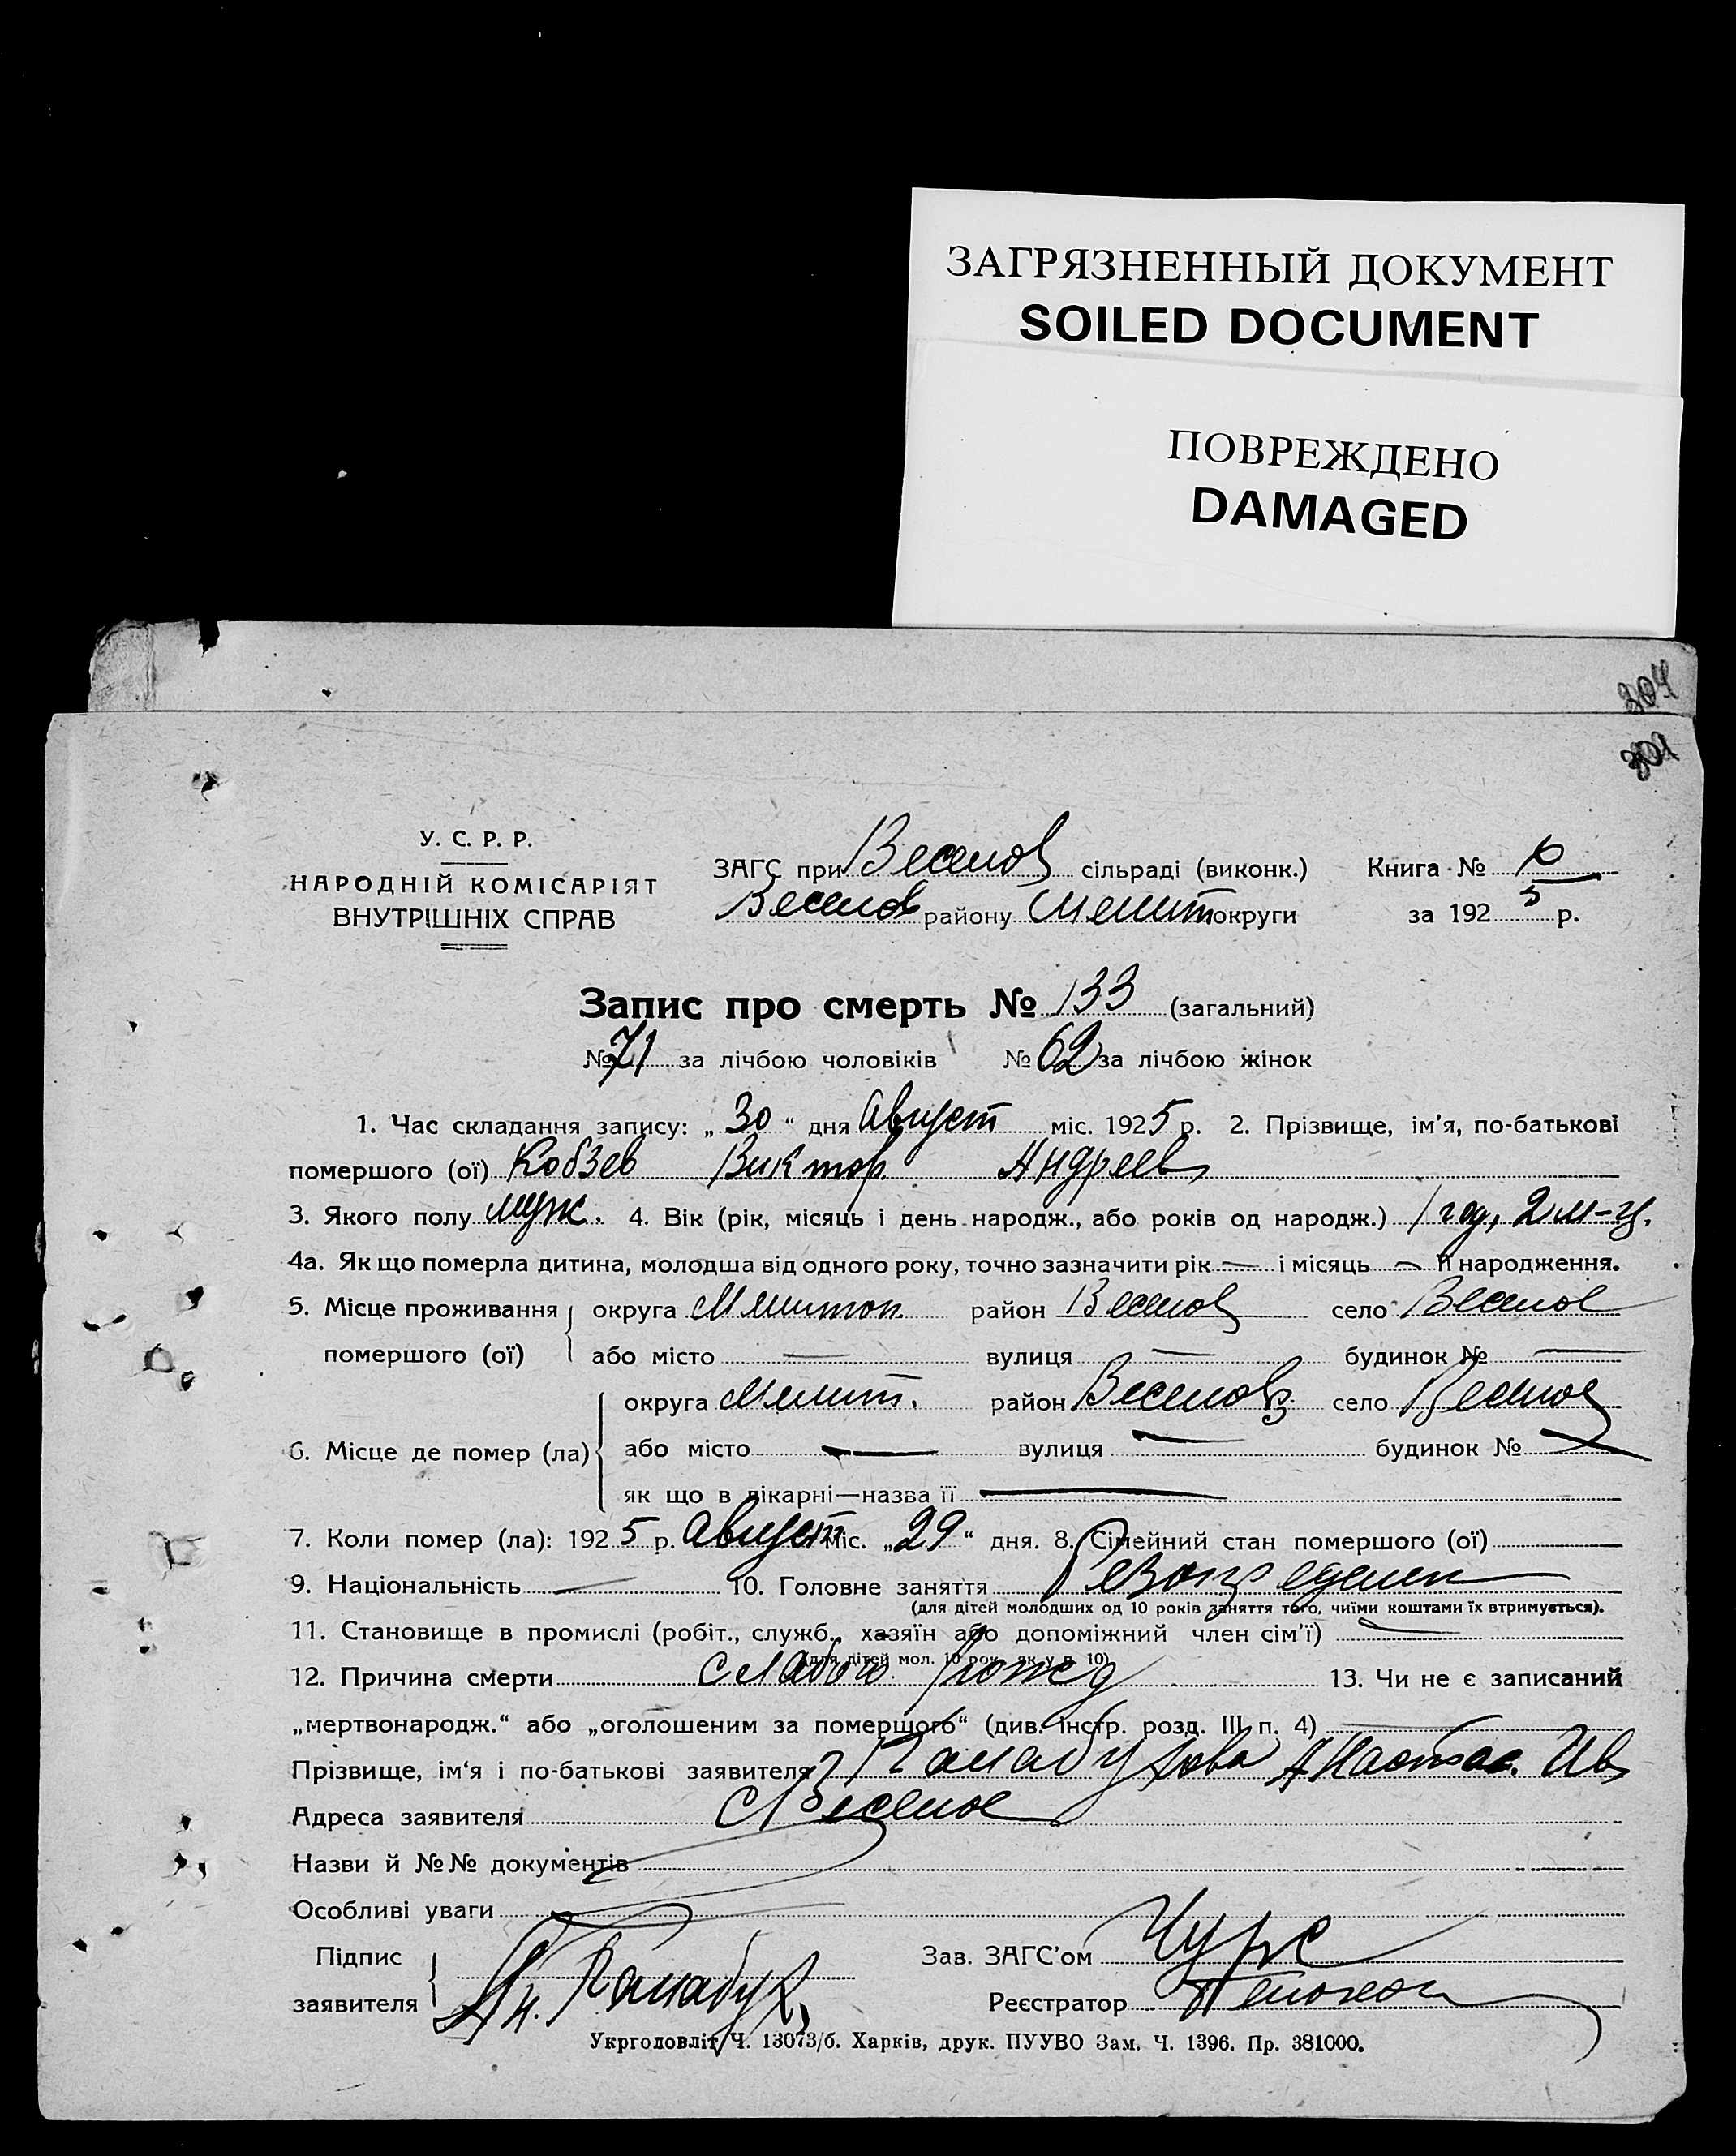 ЗАГРЯЗНЕННЫЙ ДОКУМЕНТ
SOILED DOCUMENT
ПОВРЕЖДЕНО
DAMAGED
304
301
У. С. Р. Р.
НАРОДНІЙ КОМІСАРІЯТ
ВНУТРІШНІХ СПРАВ
ЗАГС при Веселов сільраді (виконк.)
Веселов району Мелит округи
Книга № 6
за 1925 р.
Запис про смерть № 133 (загальний)
№ 71 за лічбою чоловіків № 62 за лічбою жінок
1. Час складання запису: „30“ дня Август міс. 1925 р. 2. Прізвище, ім'я, по-батькові
помершого (ої) Кобзев Виктор Андреев
3. Якого полу муж. 4. Вік (рік, місяць і день народж., або років од народж.) 1 год, 2 м-ц.
4а. Як що померла дитина, молодша від одного року, точно зазначити рік — і місяць — її народження.
5. Місце проживання округа Мелитоп. район Веселов село Веселое
помершого (ої) або місто — вулиця — будинок № —
округа Мелит. район Веселов село Веселое
6. Місце де помер (ла) або місто — вулиця — будинок № —
як що в лікарні—назва її —
7. Коли помер (ла): 1925 р. Август міс. „29“ дня. 8. Сімейний стан помершого (ої)
9. Національність — 10. Головне заняття
(для дітей молодших од 10 років заняття того, чиїми коштами їх втримується).
11. Становище в промислі (робіт., служб., хазяїн або допоміжний член сім'ї) —
(для дітей мол. 10 рок. як у п. 10)
12. Причина смерти слабого рожд 13. Чи не є записаний
„мертвонародж.“ або „оголошеним за помершого“ (див. Інстр. розд. III п. 4) —
Прізвище, ім'я і по-батькові заявителя Анастас. Ив
Адреса заявителя с Веселое
Назви й №№ документів
Особливі уваги
Підпис
заявителя
Зав. ЗАГС'ом
Реєстратор
Укрголовліт Ч. 13073/б. Харків, друк. ПУУВО Зам. Ч. 1396. Пр. 381000.